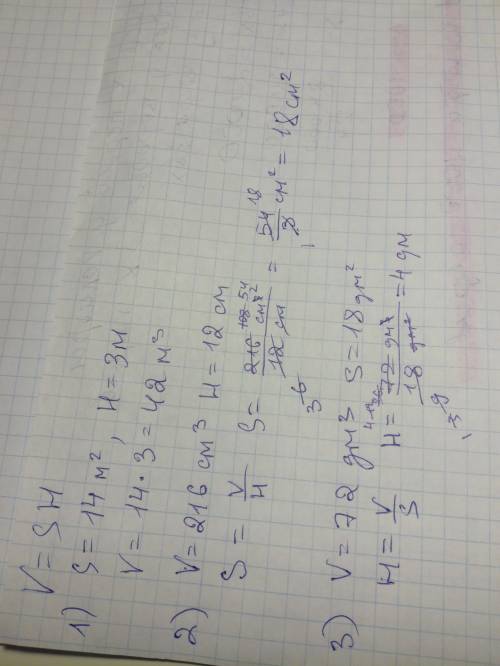 V = SH
1) S = 14 м², H = 3м
V = 14 · 3 = 42 м³
2) V = 216 см³ H = 12 см
S = V/H S = 216 см³/12 см = 54/3 см² = 18 см²
3) V = 72 дм³ S = 18 дм²
H = V/S H = 72 дм³/18 дм² = 4 дм